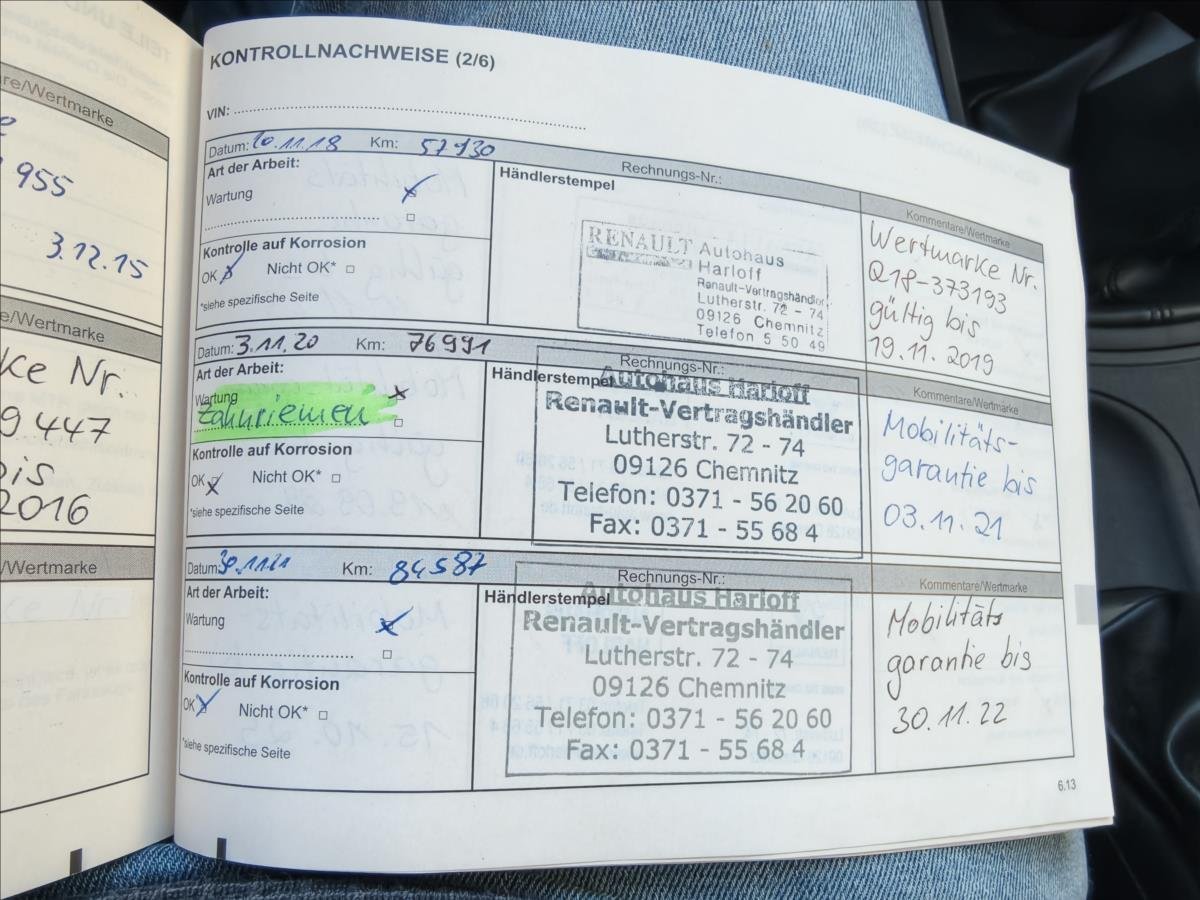 re/Wertmarke
955
3.12.15
e/Wertmarke
ke Nr.
9 447
bis
2016
/Wertmarke
KONTROLLNACHWEISE (2/6)
VIN:
Datum: 20.11.18 Km: 57930
Rechnungs-Nr.:
Art der Arbeit:
Wartung
Kontrolle auf Korrosion
OK Nicht OK*
*siehe spezifische Seite
Händlerstempel
RENAULT Autohaus
Harloff
Renault-Vertragshändler
Lutherstr. 72 - 74
09126 Chemnitz
Telefon 5 50 49
Kommentare/Wertmarke
Wertmarke Nr.
Q18-373193
gültig bis
19.11.2019
Datum: 3.11.20 Km: 76991
Rechnungs-Nr.:
Art der Arbeit:
Wartung
Zahnriemen
Kontrolle auf Korrosion
OK Nicht OK*
*siehe spezifische Seite
Händlerstempel
Autohaus Harloff
Renault-Vertragshändler
Lutherstr. 72 - 74
09126 Chemnitz
Telefon: 0371 - 56 20 60
Fax: 0371 - 55 68 4
Kommentare/Wertmarke
Mobilitäts-
garantie bis
03.11.21
Datum: 30.11.21 Km: 84587
Rechnungs-Nr.:
Art der Arbeit:
Wartung
Kontrolle auf Korrosion
OK Nicht OK*
*siehe spezifische Seite
Händlerstempel
Autohaus Harloff
Renault-Vertragshändler
Lutherstr. 72 - 74
09126 Chemnitz
Telefon: 0371 - 56 20 60
Fax: 0371 - 55 68 4
Kommentare/Wertmarke
Mobilitäts
garantie bis
30.11.22
6.13